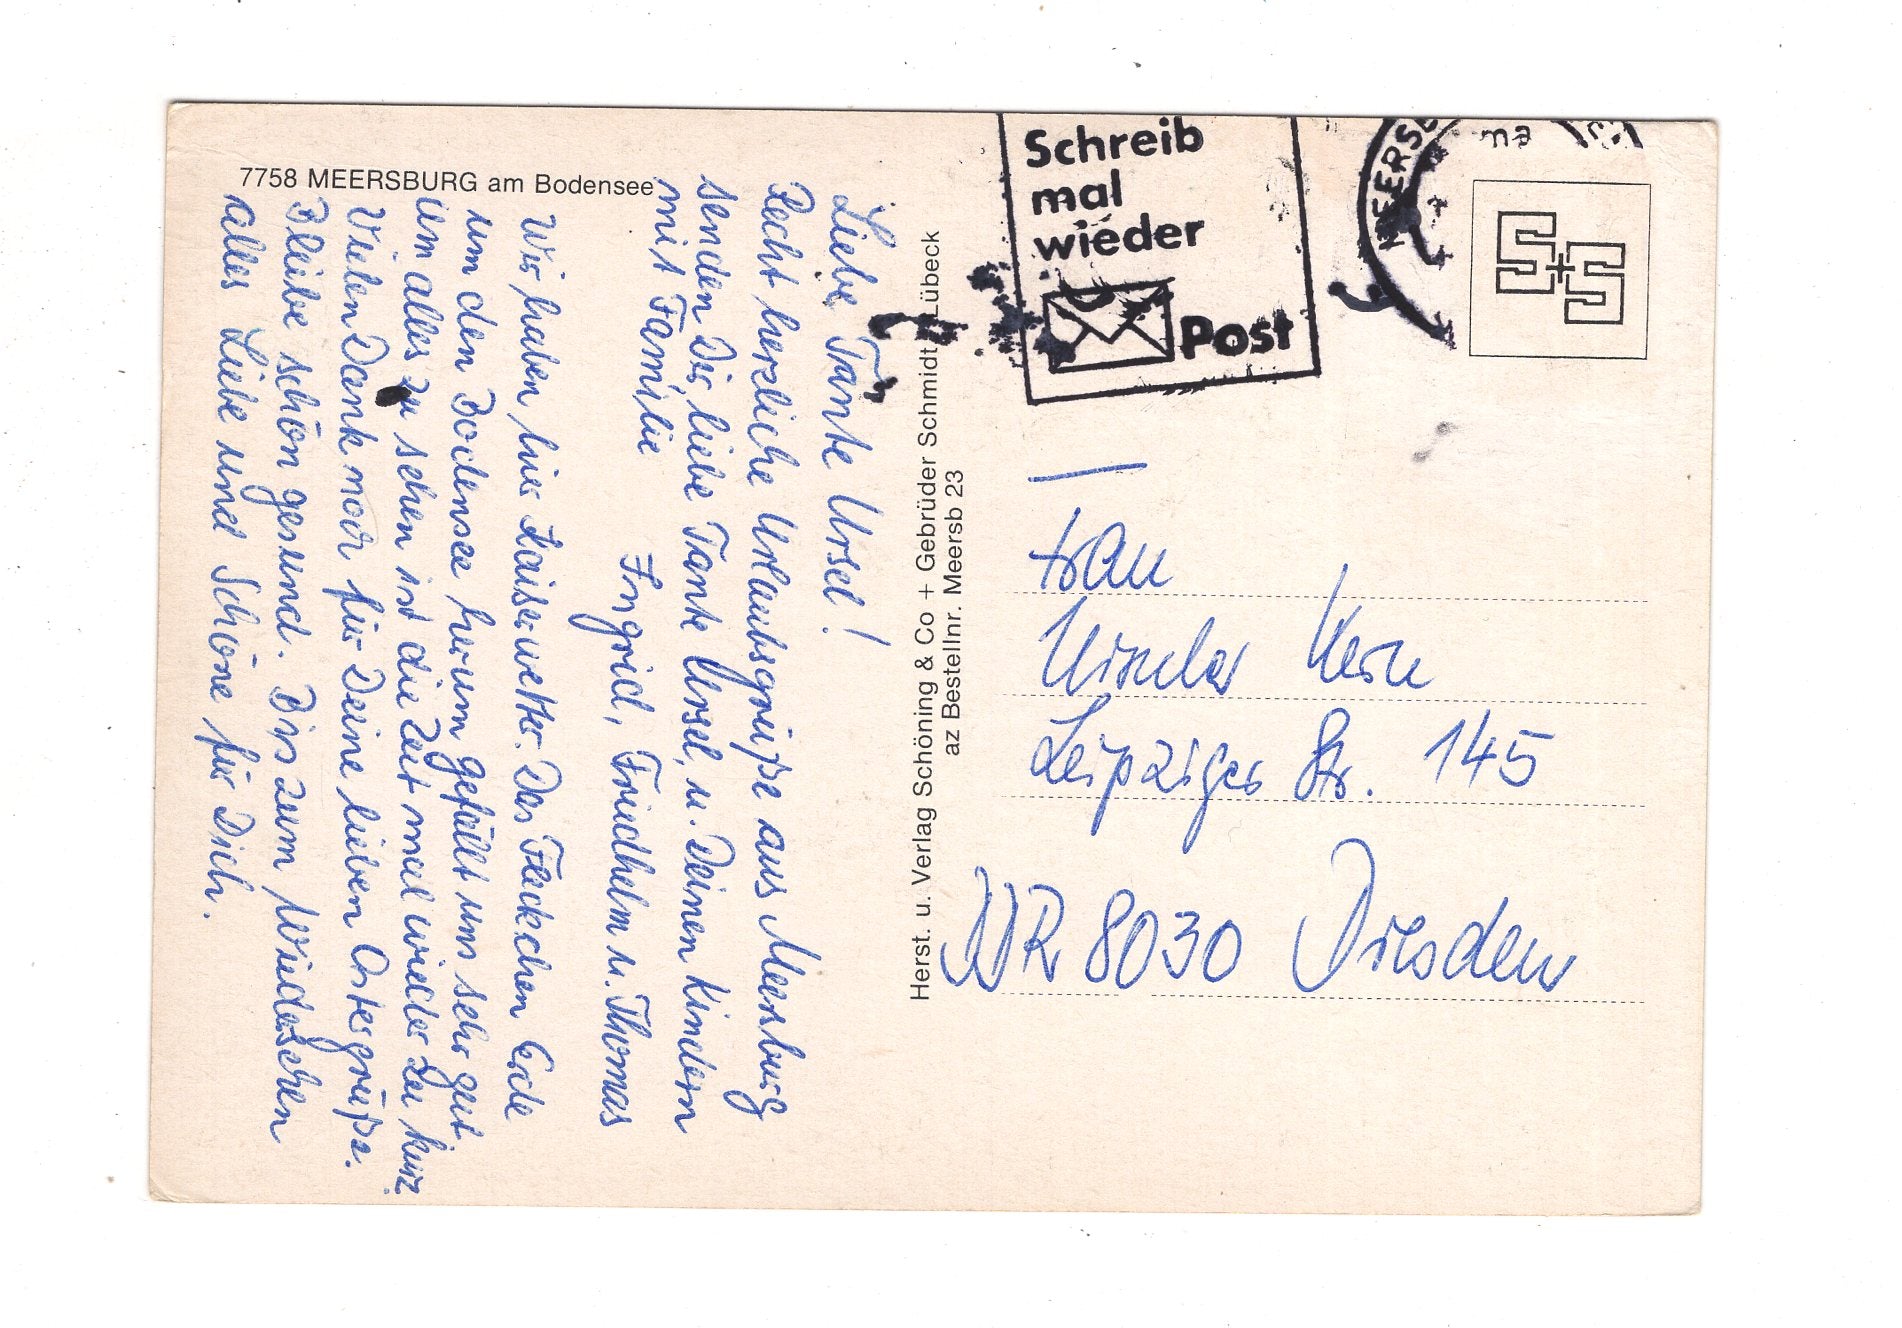 7758 MEERSBURG am Bodensee
Liebe Tante Ursel!
Recht herzliche Urlaubsgrüße aus Meersburg
senden Dir, liebe Tante Ursel, u. Deinen Kindern
mit Familie Ingrid, Friedhelm u. Thomas
Wir haben hier Kaiserwetter. Das Fleckchen Erde
um den Bodensee herum gefällt uns sehr gut.
Um alles zu sehen ist die Zeit mal wieder zu kurz.
Vielen Dank noch für Deine lieben Ostergrüße.
Bleibe schön gesund. Bis zum Wiedersehen
alles Liebe und Schöne für Dich.
Herst. u. Verlag Schöning & Co + Gebrüder Schmidt, Lübeck
az Bestellnr. Meersb 23
Schreib
mal
wieder
Post
S+S
Frau
Ursula Kern
Leipziger Str. 145
DDR 8030 Dresden